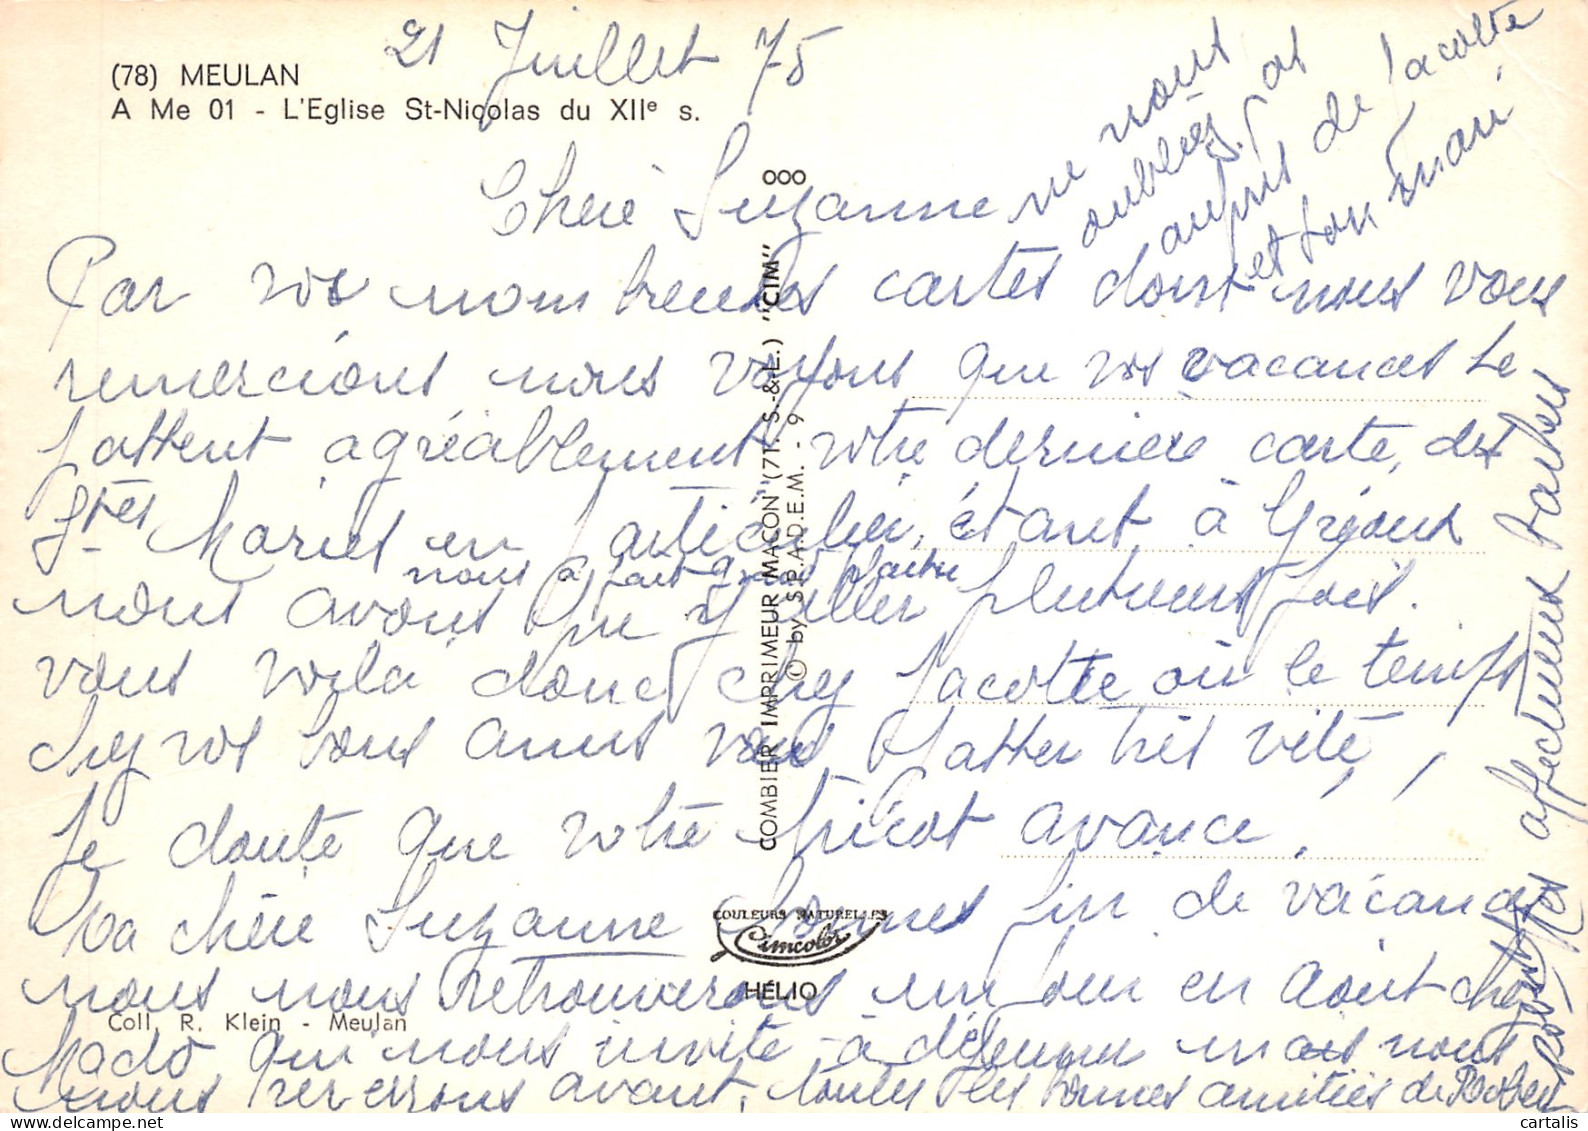 21 Juillet 75
(78) MEULAN
A Me 01 - L'Eglise St-Nicolas du XIIe s.
Chère Suzanne
Par vos nombreuses cartes dont nous vous
remercions nous voyons que vos vacances se
passent agréablement votre dernière carte, des
Stes Maries en particulier, étant à Gréoux
nous a fait grand plaisir
nous avons pu y aller plusieurs fois.
vous voilà donc chez Jacotte où le temps
chez vos bons amis va passer très vite,
Je doute que votre tricot avance,
Ma chère Suzanne bonnes fin de vacances
nous nous retrouverons un jour en août chez
Mado qui nous invite à déjeuner mais nous
nous reverrons avant, toutes les bonnes amitiés de Robert
affectueux baisers
ne nous
oubliez pas
auprès de Jacotte
et son mari
COMBIER IMPRIMEUR MACON (71. S.-&-L.) "CIM"
© by S.P.A.D.E.M. - 9
OOO
COULEURS NATURELLES
Cimcolor
HÉLIO
Coll. R. Klein - Meulan
cartalis